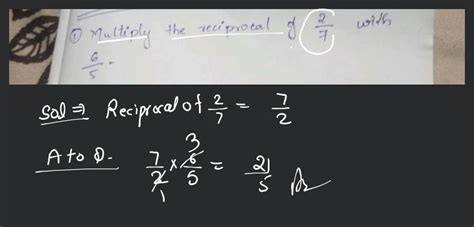 ① Multiply the reciprocal of 2/7 with
6/5.
Sol ⇒ Reciprocal of 2/7 = 7/2
A to Q. 7/2 × 6/5 = 21/5 Ans
3
1